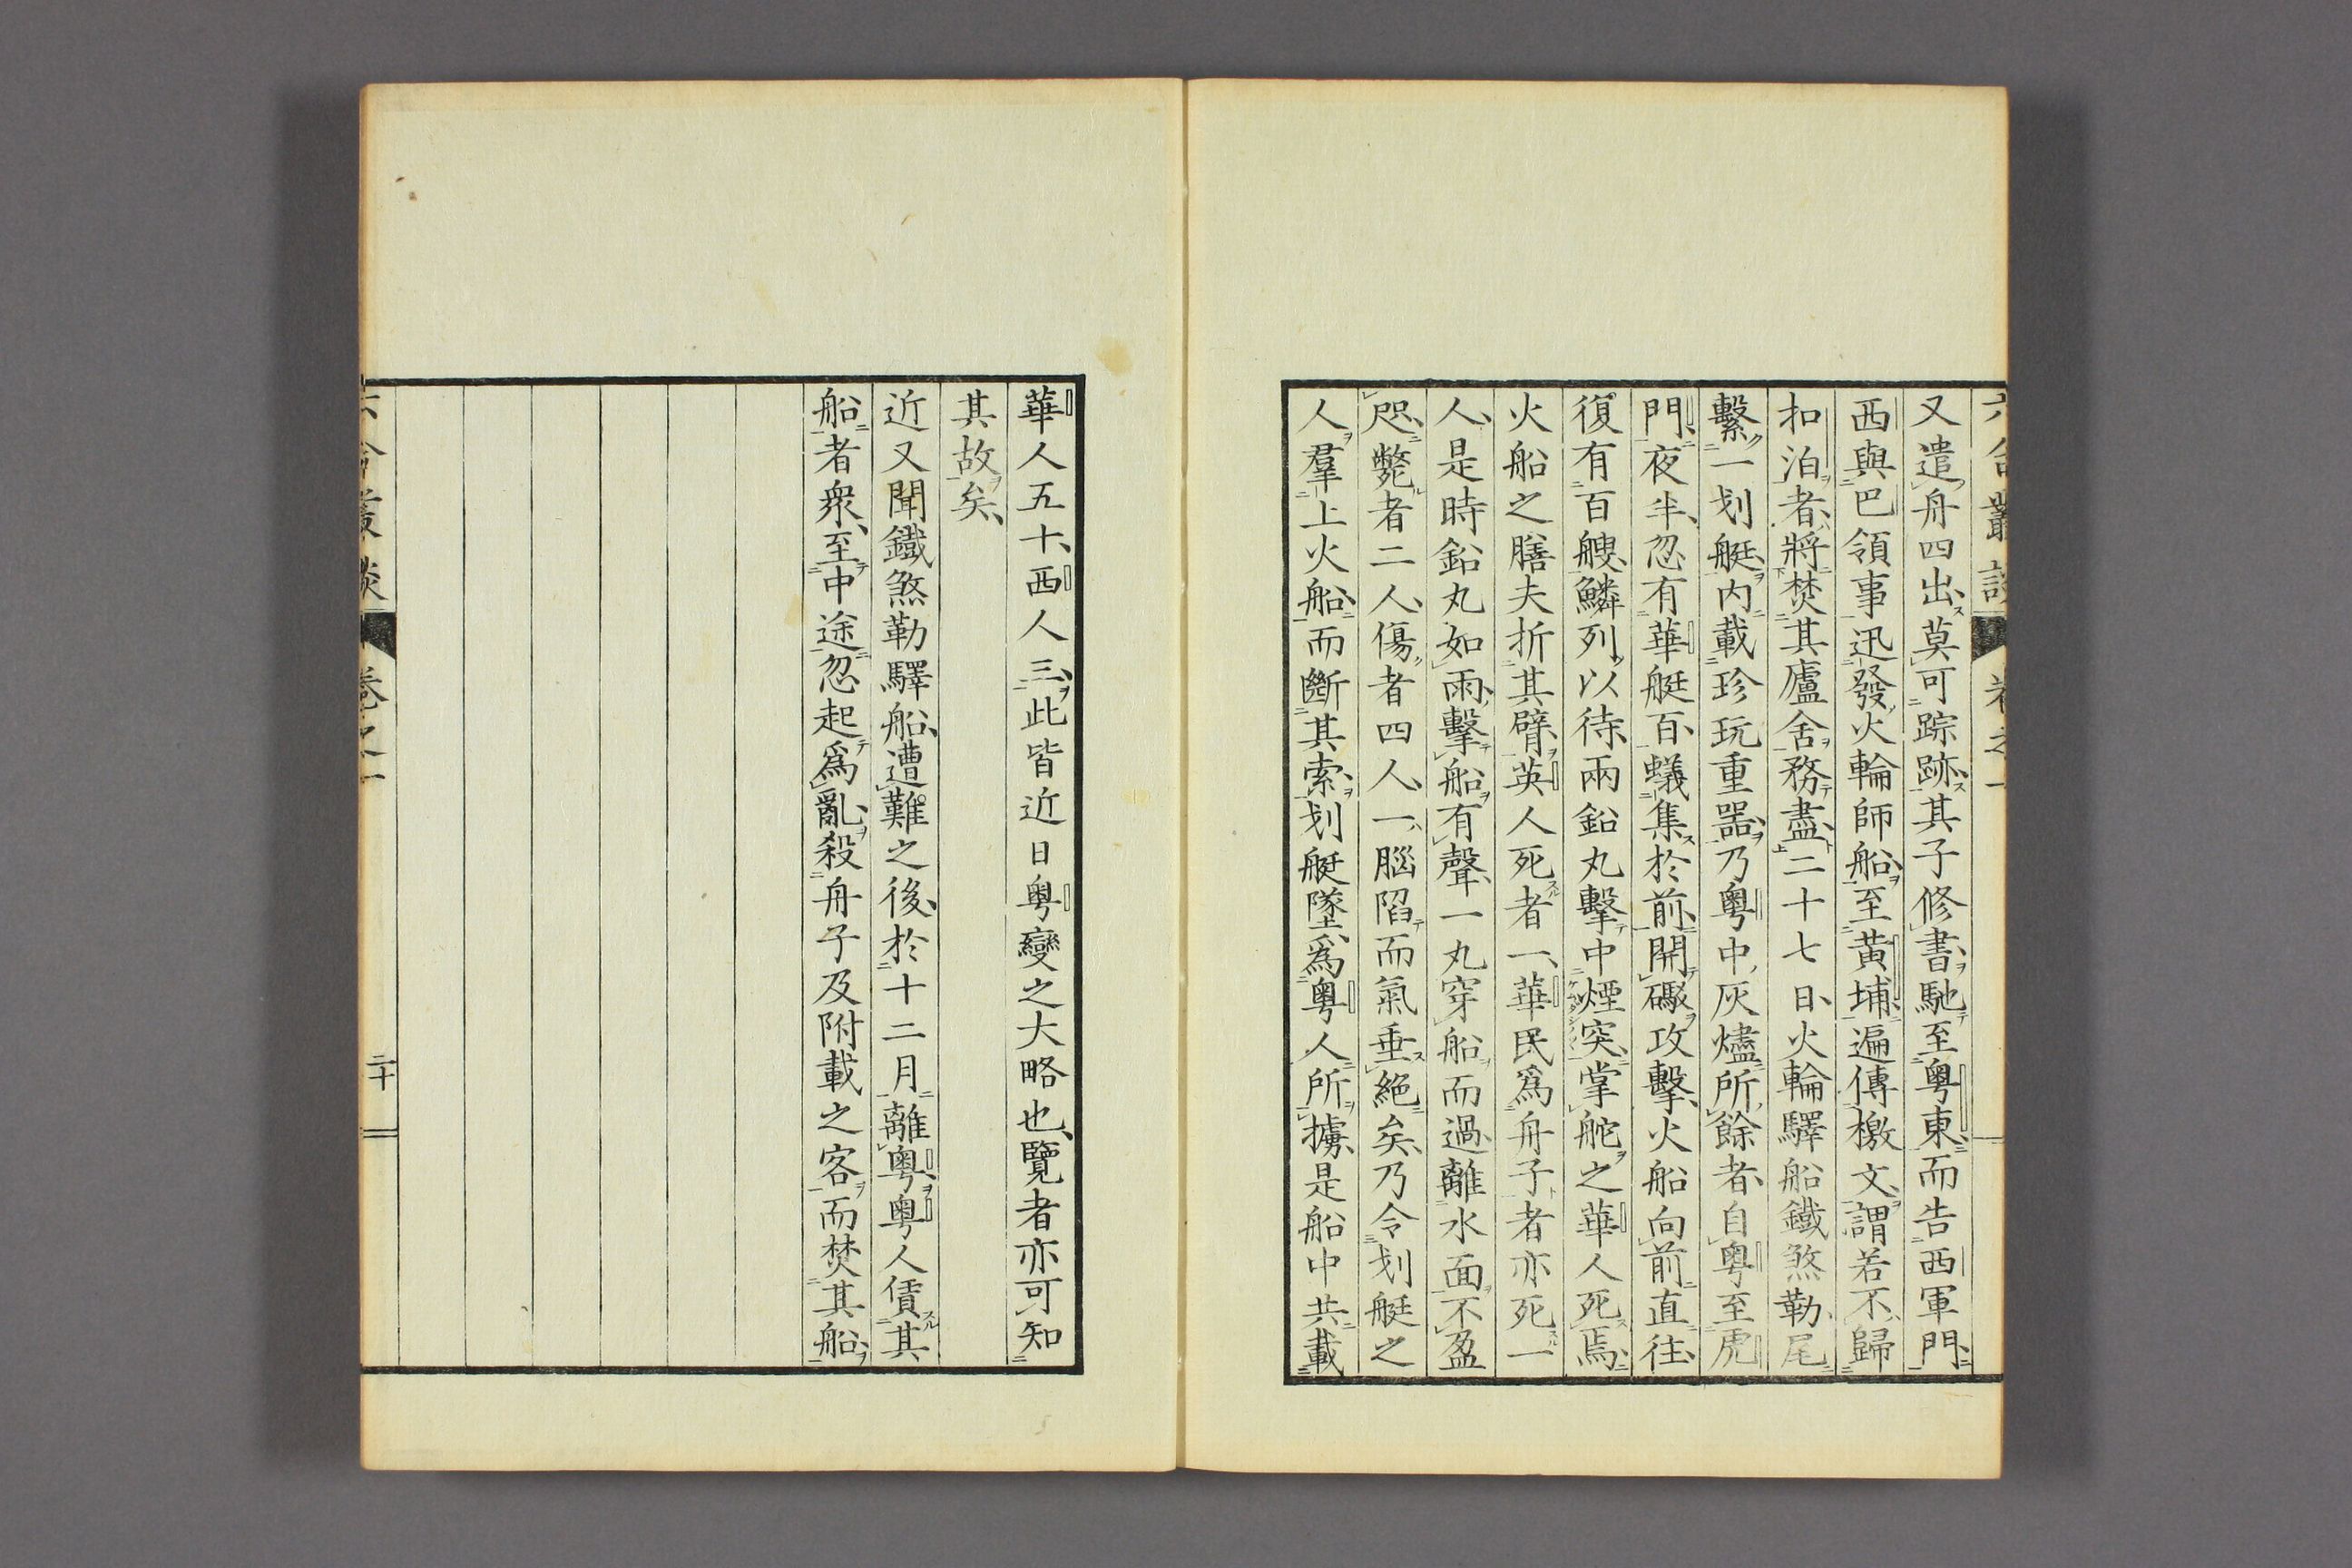 六合叢談 卷之一
又遣舟四出莫可踪跡其子修書馳至粵東而告西軍門
西與巴領事迅發火輪師船至黃埔遍傳檄文謂若不歸
扣泊者將焚其廬舍務盡二十七日火輪驛船鐵煞勒尾
繫一划艇內載珍玩重器乃粵中灰燼所餘者自粵至虎
門夜半忽有華艇百蟻集於前開礮攻擊火船向前直往
復有百艘鱗列以待兩鉛丸擊中煙突掌舵之華人死焉
火船之膳夫折其臂英人死者一華民爲舟子者亦死一
人是時鉛丸如雨擊船有聲一丸穿船而過離水面不盈
咫斃者二人傷者四人一腦陷而氣垂絕矣乃令划艇之
人羣上火船而斷其索划艇墜爲粵人所擄是船中共載
華人五十西人三此皆近日粵變之大略也覽者亦可知
其故矣
近又聞鐵煞勒驛船遭難之後於十二月離粵粵人賃其
船者衆至中途忽起爲亂殺舟子及附載之客而焚其船
六合叢談 卷之一 二十